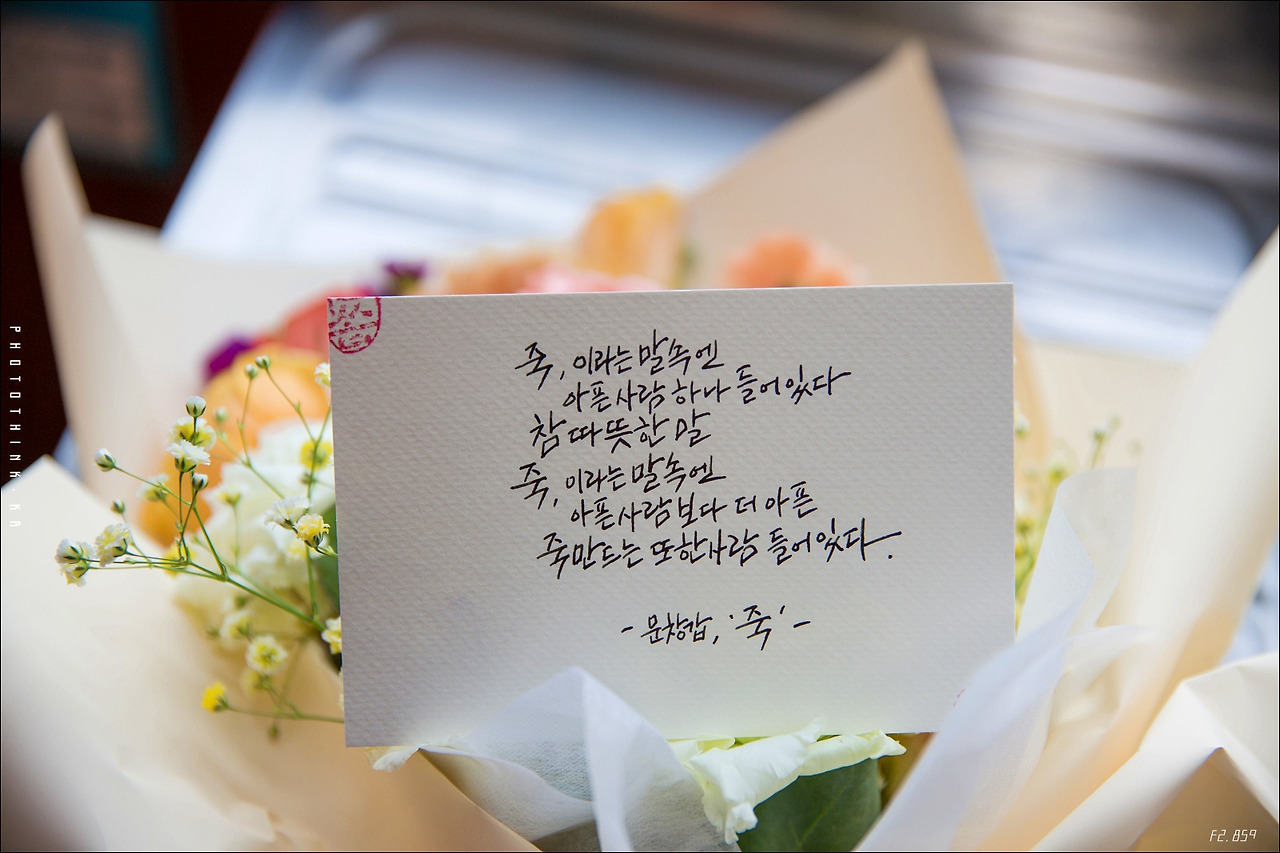 죽, 이라는 말속엔
아픈사람 하나 들어있다
참 따뜻한 말
죽, 이라는 말속엔
아픈사람보다 더 아픈
죽만드는 또한사람 들어있다.
- 문창갑, '죽' -
PHOTOTHINKKA
F2.859